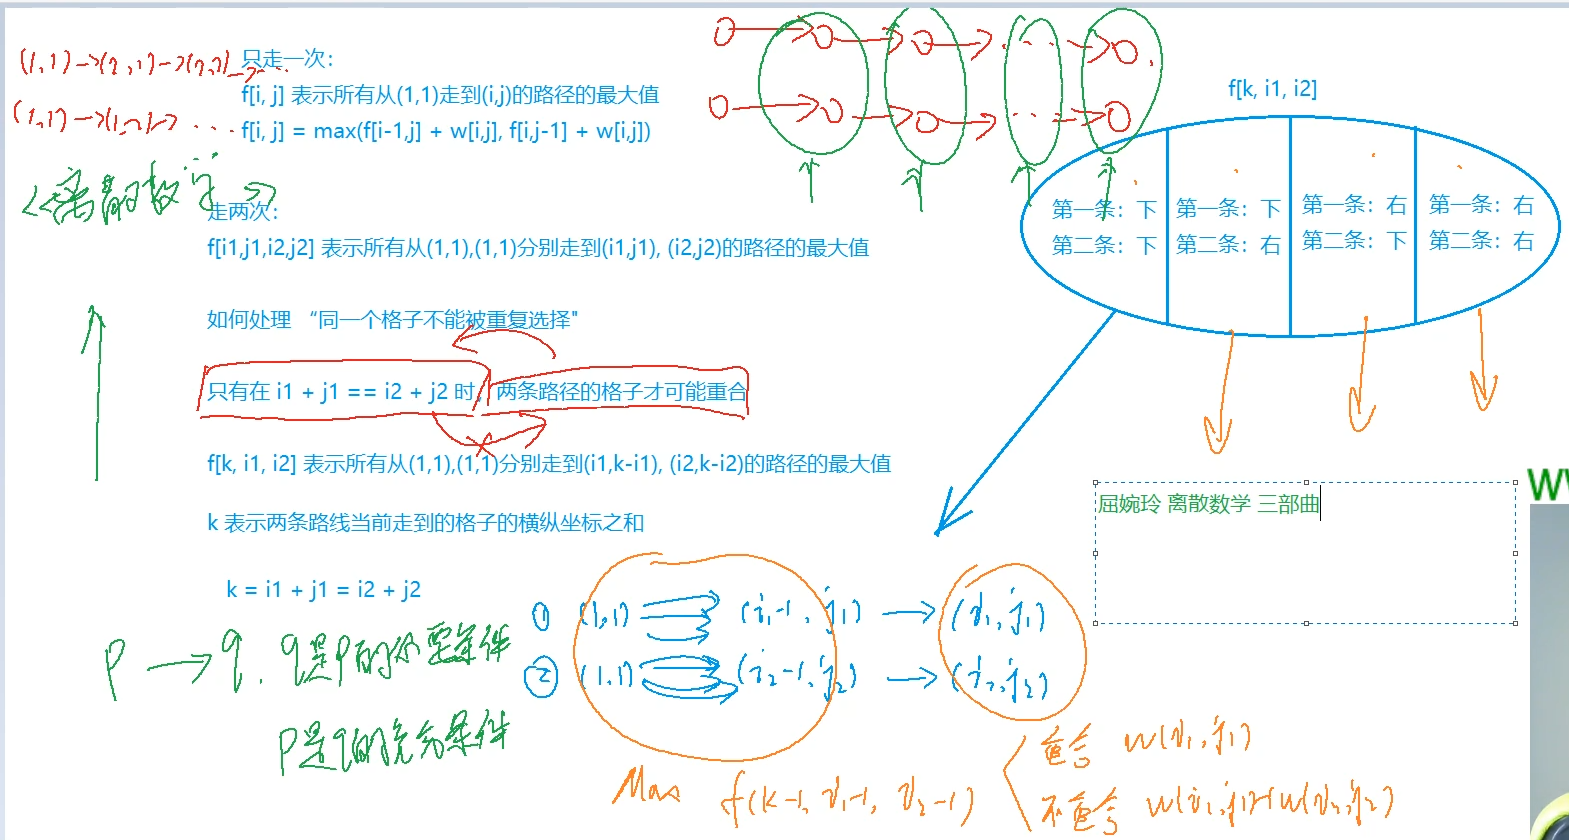 只走一次：
f[i, j] 表示所有从(1,1)走到(i,j)的路径的最大值
f[i, j] = max(f[i-1,j] + w[i,j], f[i,j-1] + w[i,j])
(1,1)→(2,1)→(2,2)→...
(1,1)→(1,2)→...
<离散数学>
走两次：
f[i1,j1,i2,j2] 表示所有从(1,1),(1,1)分别走到(i1,j1), (i2,j2)的路径的最大值
如何处理 “同一个格子不能被重复选择"
只有在 i1 + j1 == i2 + j2 时，两条路径的格子才可能重合
f[k, i1, i2] 表示所有从(1,1),(1,1)分别走到(i1,k-i1), (i2,k-i2)的路径的最大值
k 表示两条路线当前走到的格子的横纵坐标之和
k = i1 + j1 = i2 + j2
p → q. q是p的必要条件
p是q的充分条件
f[k, i1, i2]
第一条：下 第一条：下 第一条：右 第一条：右
第二条：下 第二条：右 第二条：下 第二条：右
屈婉玲 离散数学 三部曲
W
① (1,1) → (i₁-1, j₁) → (i₁, j₁)
② (1,1) → (i₂-1, j₂) → (i₂, j₂)
Max f(k-1, i₁-1, i₂-1)
重合 w(i₁, j₁)
不重合 w(i₁, j₁)+w(i₂, j₂)